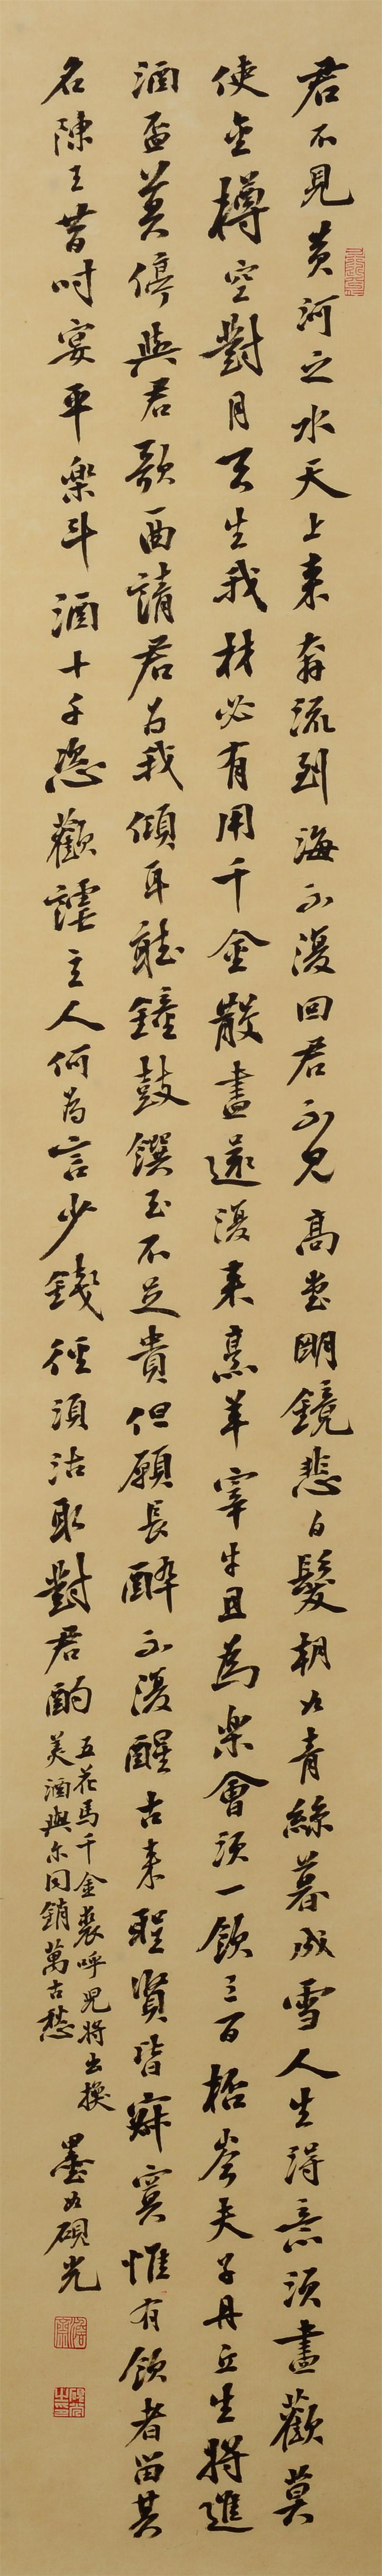 君不見黃河之水天上來奔流到海不復回君不見高堂明鏡悲白髮朝如青絲暮成雪人生得意須盡歡莫
使金樽空對月天生我材必有用千金散盡還復來烹羊宰牛且為樂會須一飲三百桮岑夫子丹丘生將進
酒盃莫停與君歌一曲請君為我傾耳聽鐘鼓饌玉不足貴但願長醉不復醒古來聖賢皆寂寞惟有飲者留其
名陳王昔時宴平樂斗酒十千恣歡謔主人何為言少錢徑須沽取對君酌
五花馬千金裘呼兒將出換
美酒與尔同銷萬古愁
墨如硯光